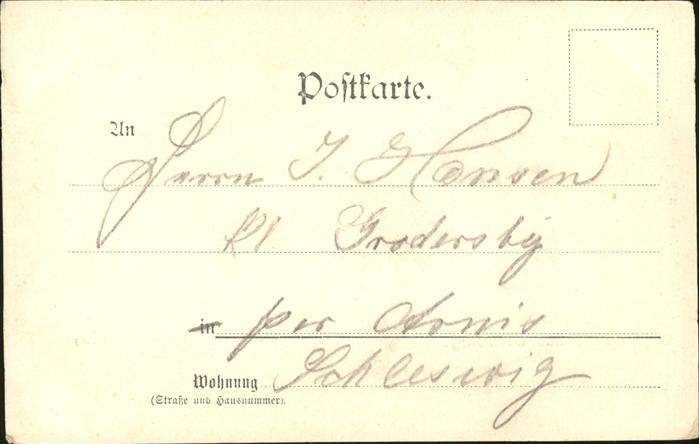 Postkarte.
An Herrn J. Hansen
Kl Grodersby
in per Arnis
Wohnung Schleswig
(Straße und Hausnummer).